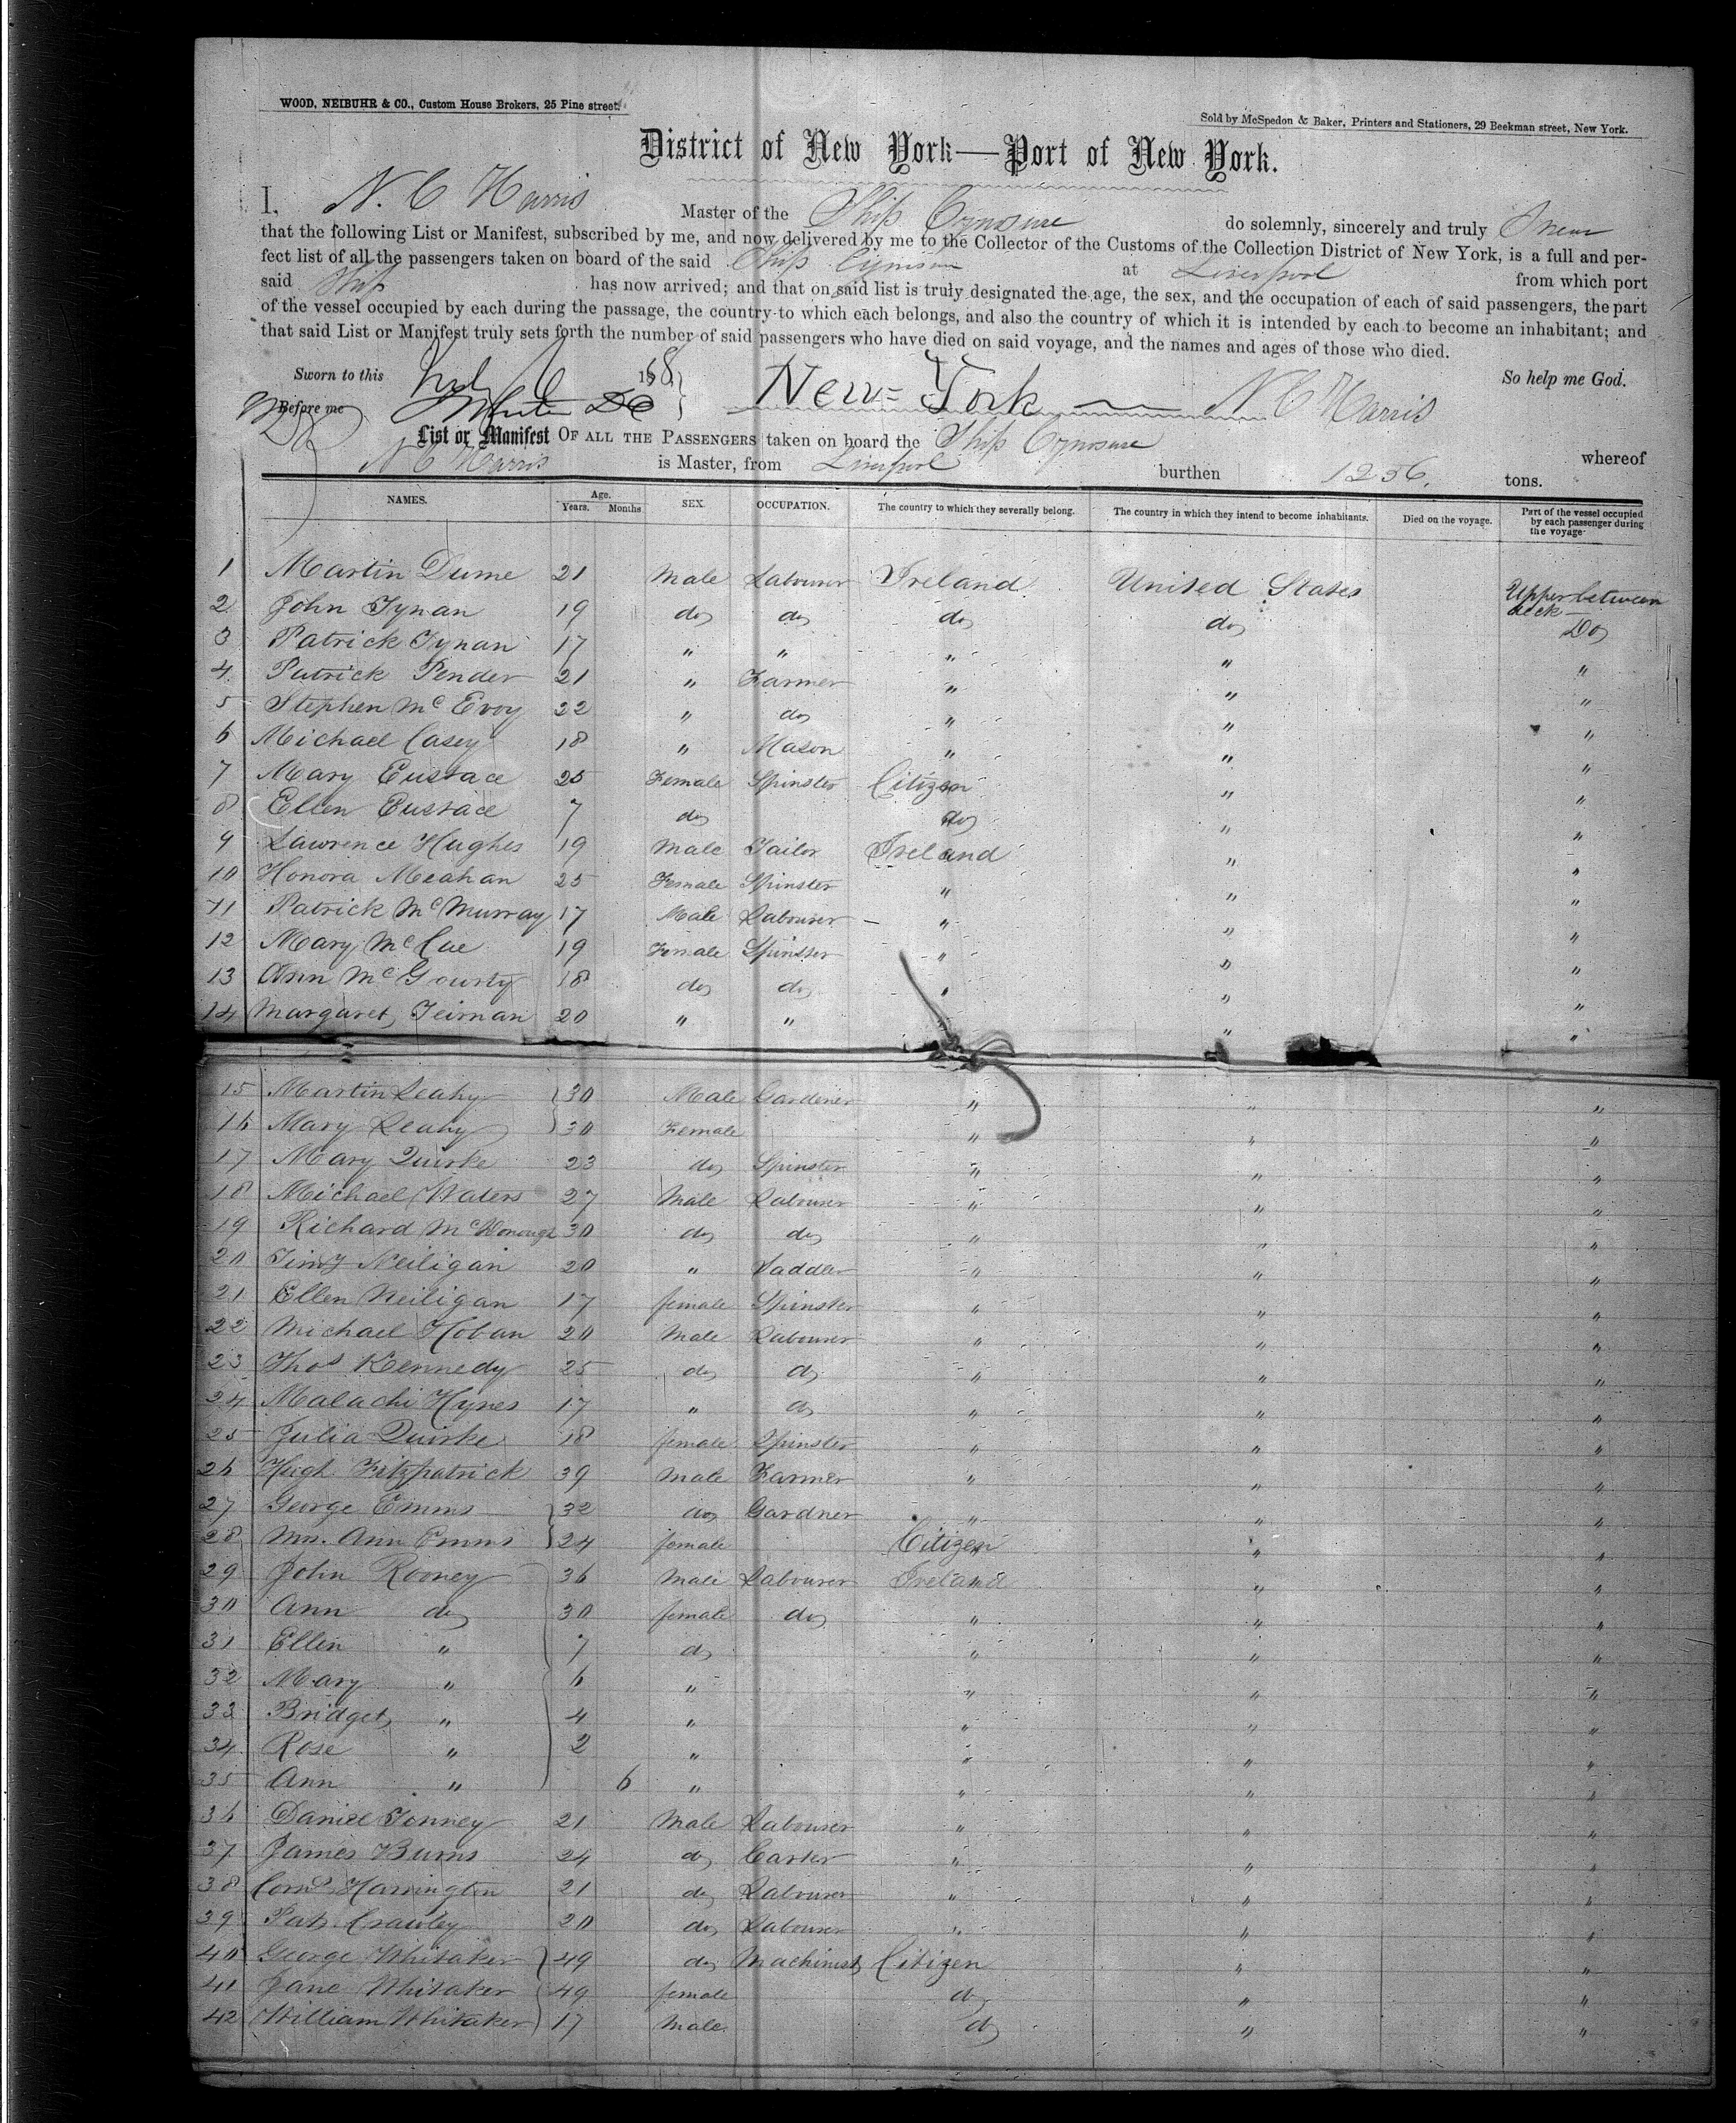 WOOD, NEIBUHR & CO., Custom House Brokers, 25 Pine street.
Sold by McSpedon & Baker, Printers and Stationers, 29 Beekman street, New York.
District of New York—Port of New York.
I, N. C Harris Master of the Ship Cynosure do solemnly, sincerely and truly Swear
that the following List or Manifest, subscribed by me, and now delivered by me to the Collector of the Customs of the Collection District of New York, is a full and per-
fect list of all the passengers taken on board of the said Ship Cynosure at Liverpool from which port
said Ship has now arrived; and that on said list is truly designated the age, the sex, and the occupation of each of said passengers, the part
of the vessel occupied by each during the passage, the country to which each belongs, and also the country of which it is intended by each to become an inhabitant; and
that said List or Manifest truly sets forth the number of said passengers who have died on said voyage, and the names and ages of those who died.
Sworn to this 186 So help me God.
Before me New=York N C Harris
List or Manifest OF ALL THE PASSENGERS taken on board the Ship Cynosure whereof
N C Harris is Master, from Liverpool burthen 1256. tons.
NAMES. Age. Years. Months SEX. OCCUPATION. The country to which they severally belong. The country in which they intend to become inhabitants. Died on the voyage. Part of the vessel occupied by each passenger during the voyage
1 Martin Dume 21 Male Labourer Ireland United States Upper between deck
2 John Tynan 19 do do do do Do
3 Patrick Tynan 17 " " " " "
4 Patrick Pender 21 " Farmer " " "
5 Stephen Mc Evoy 22 " do " " "
6 Michael Casey 18 " Mason " " "
7 Mary Eustace 25 Female Spinster Citizen " "
8 Ellen Eustace 7 do do " "
9 Lawrence Hughes 19 Male Tailor Ireland " "
10 Honora Meahan 25 Female Spinster " " "
11 Patrick Mc Murray 17 Male Labourer " " "
12 Mary Mc Cue 19 Female Spinster " " "
13 Ann Mc Gourty 18 do do " " "
14 Margaret Teirnan 20 " " " " "
15 Martin Leahy 30 Male Gardener " " "
16 Mary Leahy 30 Female " " "
17 Mary Quirke 23 do Spinster " " "
18 Michael Waters 27 Male Labourer " " "
19 Richard Mc Donough 30 do do " " "
20 Timy Neiligan 20 " Saddler " " "
21 Ellen Neiligan 17 female Spinster " " "
22 Michael Hoban 20 Male Labourer " " "
23 Thos Kennedy 25 do do " " "
24 Malachi Hynes 17 " do " " "
25 Julia Quirke 18 female Spinster " " "
26 Hugh Fitzpatrick 39 Male Farmer " " "
27 George Emms 32 do Gardner " " "
28 Mrs. Ann Emms 24 female Citizen " "
29 John Rooney 36 Male Labourer Ireland " "
30 Ann do 30 female do " " "
31 Ellen " 7 do " " "
32 Mary " 6 " " " "
33 Bridget " 4 " " " "
34 Rose " 2 " " " "
35 Ann " 6 " " " "
36 Daniel Tonney 21 Male Labourer " " "
37 James Burns 24 do Carter " " "
38 Corns Harrington 21 do Labourer " " "
39 Pat. Crawley 20 do Labourer " " "
40 George Whitaker 49 do Machinist Citizen " "
41 Jane Whitaker 49 female do " "
42 William Whitaker 17 Male do " "